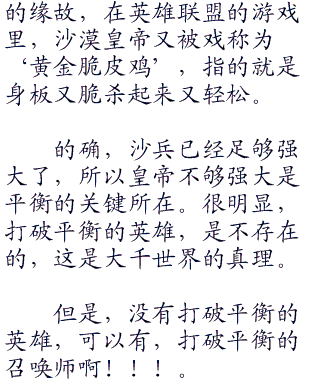 的缘故，在英雄联盟的游戏
里，沙漠皇帝又被戏称为
‘黄金脆皮鸡’，指的就是
身板又脆杀起来又轻松。
的确，沙兵已经足够强
大了，所以皇帝不够强大是
平衡的关键所在。很明显，
打破平衡的英雄，是不存在
的，这是大千世界的真理。
但是，没有打破平衡的
英雄，可以有，打破平衡的
召唤师啊！！！。